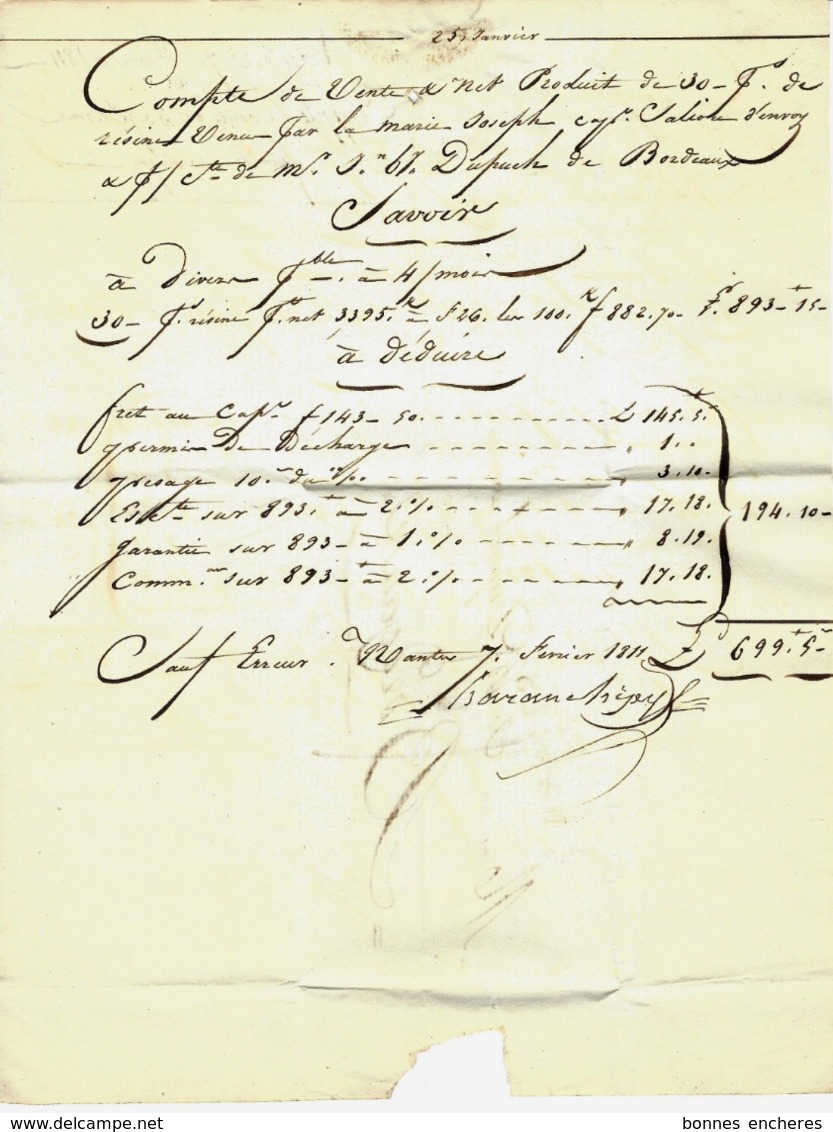 25, Janvier
Compte de Vente & net Produit de 30 - f.s de
résine Venu par la marie Joseph cap.e d'envoy
& p/ Cte de Mr. J.n Bte. Dupuch de Bordeaux
Savoir
à Divers P.ble à 4/moix
30 - f.s résine p.t net 3395.k à f 26. les 100.k f 882.70 - 893 - 15 -
à déduire
fret au Cap.ne f 143 - 50. £ 145. 5.
permis De Décharge " 1. "
pesage 10. du %. " 3. 10.
Es.cte sur 893. à 2.% " 17. 18.
194. 10 -
garantie sur 893 - à 1.% " 8. 19.
Comm.on sur 893 - à 2.% " 17. 18.
Sauf Erreur. Nantes 7. Fevrier 1811 £ 699. 5 -
www.delcampe.net bonnes encheres